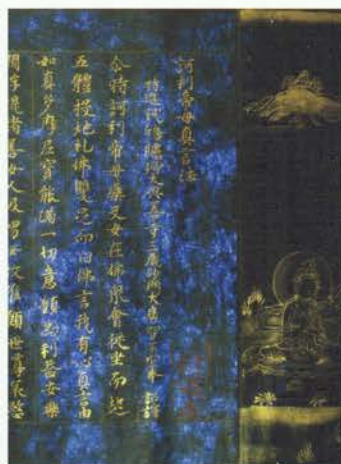 訶利帝母真言法
特進試鴻臚卿大興善寺三藏沙門大廣智不空奉 詔譯
尒時訶利帝母藥叉女在佛衆會從坐而起
五體投地礼佛雙足而白佛言我有心真言由
如真多摩尼寶能滿一切意願為利益安樂
善女人及男女唯願世尊哀愍